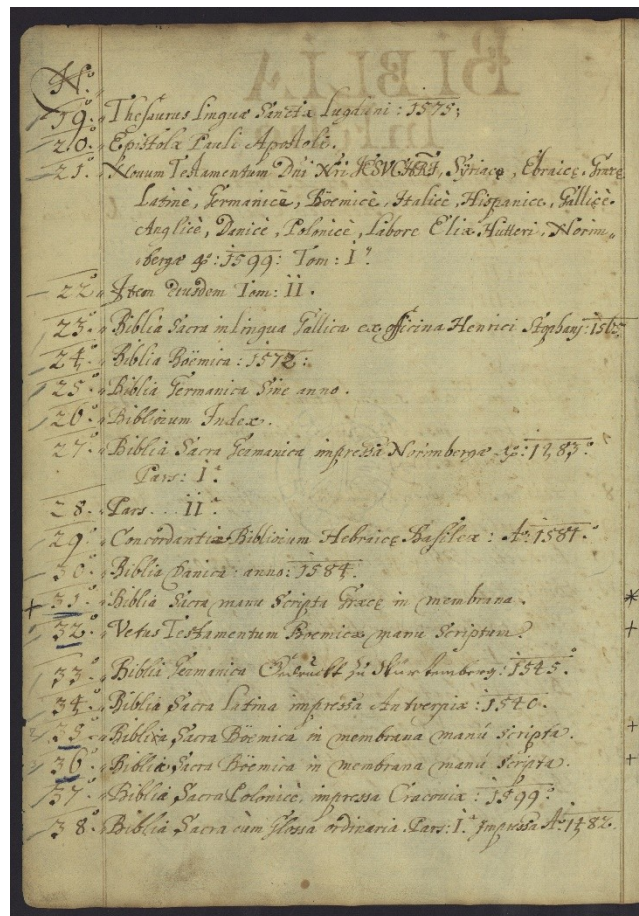 N.º
19. Thesaurus linguæ Sanctæ Lugduni: 1575;
20. Epistolæ Pauli Apostoli.
21. Novum Testamentum Dni Nri JESU CHRI, Syriacę, Ebraicę, Græcę
Latinè, Germanicè, Böemicè, Italicè, Hispanicè, Gallicè.
Anglicè, Danicè, Polonicè, Labore Eliæ Hutteri, Norim„
bergæ aº: 1599: Tom: I.º
22. Item Eiusdem Tom: II.
23. Biblia Sacra in lingua Gallica ex officina Henrici Stephany: 1565.
24. Biblia Böemica: 1572:
25. Biblia Germanica Sine anno.
26. Bibliorum Index.
27. Biblia Sacra Germanica impressa Norimbergæ aº: 1483.
Pars: I.ª
28. Pars... II.ª
29. Concordantiæ Bibliorum Hebraicę Basileæ: Aº: 1581.
30. Biblia Danica anno: 1584.
+ 31. Biblia Sacra manu Scripta Græcę in membrana. *
32. Vetus Testamentum Boemicæ manu Scriptum. +
33. Biblia Germanica Gedruckt zu Wurtemberg: 1545.
34. Biblia Sacra Latina impressa Antverpiæ: 1540.
35. Biblia Sacra Böemica in membrana manú scripta. +
36. Biblia Sacra Böemica in membrana manú scripta. +
37. Biblia Sacra Polonicè, impressa Cracoviæ: 1599.
38. Biblia Sacra cum Glossa ordinaria Pars: I.ª Impressa Aº: 1482.